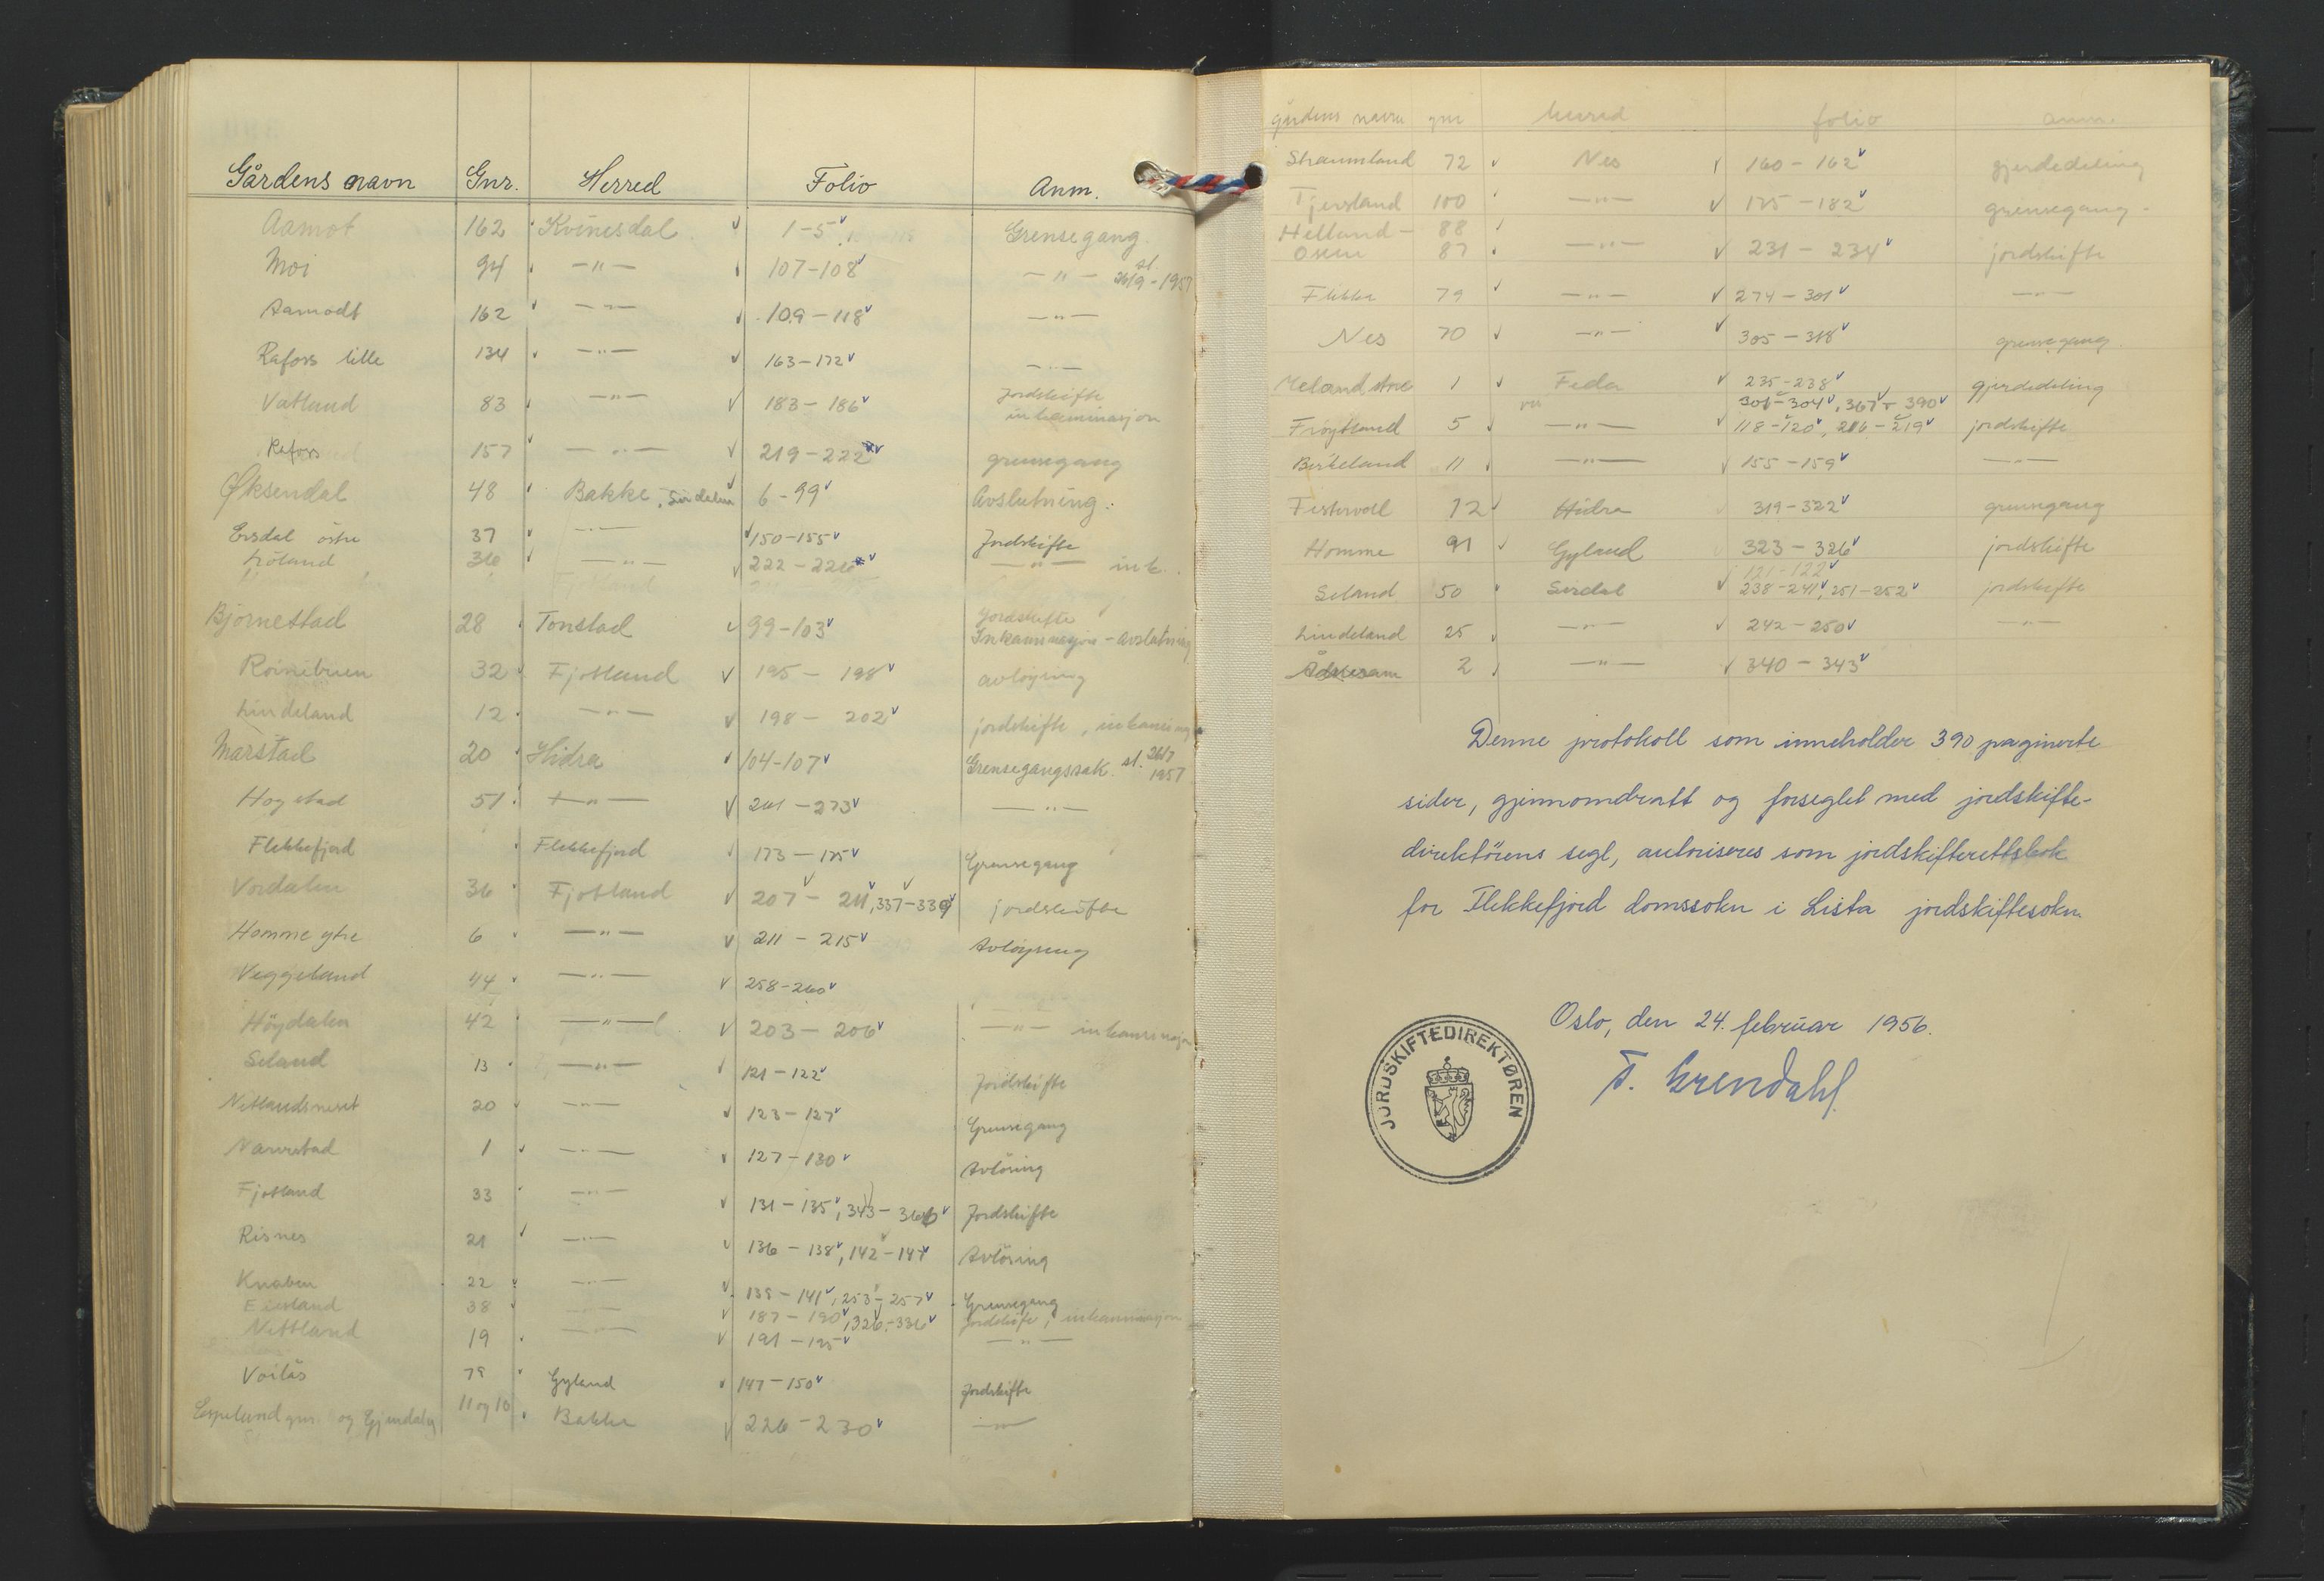 Gårdens navn Gnr. Herred Folio Anm.
Aamot 162 Kvinesdal 1-5 Grensegang.
Moi 94 -"- 107-108 -"- sl. 26/9-1957
Aamodt 162 -"- 109-118 -"-
Rafoss lille 134 -"- 163-172 -"-
Vatland 83 -"- 183-186 Jordskifte
inkaminasjon
Rafoss 157 -"- 219-222 grensegang
Øksendal 48 Bakke, Sirdalen 6-99 Avslutning.
Ersdal östre 37 -"- 150-155 Jordskifte
Löland 36 -"- 222-226 -"- ink.
Björnestad 28 Tonstad 99-103 Jordskifte
Inkaminasjon - Avslutning
Roinebuen 32 Fjotland 195-198 avløysing
Lindeland 12 -"- 198-202 jordskifte, inkaminasj
Marstad 20 Hidra 104-107 Grensegangssak. sl. 26/7
1957
Hogstad 51 -"- 261-273 -"-
Flekkefjord Flekkefjord 173-175 Grensegang
Vordalen 36 Fjotland 207-211, 337-339 jordskifte
Homme ytre 6 -"- 211-215 Avløysing
Veggeland 44 -"- 258-260
Höydalen 42 -"- 203-206 -"- inkaminasjon
Seland 13 -"- 121-122 Jordskifte
Netlandsneset 20 -"- 123-127 Grensegang
Narvestad 1 -"- 127-130 Avlösing
Fjotland 33 -"- 131-135, 343-366 Jordskifte
Risnes 21 -"- 136-138, 142-147 Avlösing
Knaben 22 -"- 138-141, 253-257 Grensegang
Eiesland 38 -"- 187-190, 326-336 Jordskifte, inkaminasjon
Nettland 19 -"- 191-195 -"-
Voilås 79 Gyland 147-150 Jordskifte
Espelund gnr. og Gjendalen 11 og 10 Bakke 226-230 -"-
gårdens navn gnr herred folio anm.
Straumland 72 Nes 160-162 gjerdedeling
Tjersland 100 -"- 175-182 grensegang
Helland- 88
Osen 87 -"- 231-234 jordskifte
Flikka 79 -"- 274-301 -"-
Nes 70 -"- 305-318 grensegang
Meland store 1 Feda 235-238 gjerdedeling
301-304, 367-390
Fröytland 5 -"- 118-120, 216-219 jordskifte
Birkeland 11 -"- 155-159 -"-
Festervoll 12 Hidra 319-322 grensegang
Homme 91 Gyland 323-326 jordskifte
121-122
Seland 50 Sirdal 238-241, 251-252 jordskifte
Lindeland 25 -"- 242-250 -"-
Ådneram 2 -"- 340-343
Denne protokoll som inneholder 390 paginerte
sider, gjennomdratt og forseglet med jordskifte-
direktörens segl, autoriseres som jordskifterettsbok
for Flekkefjord domssokn i Lista jordskiftesokn.
Oslo, den 24. februar 1956.
T. Grendahl.
JORDSKIFTEDIREKTØREN